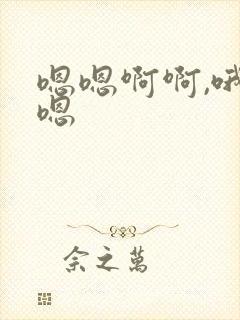 嗯嗯啊啊,哦
嗯
余之萬